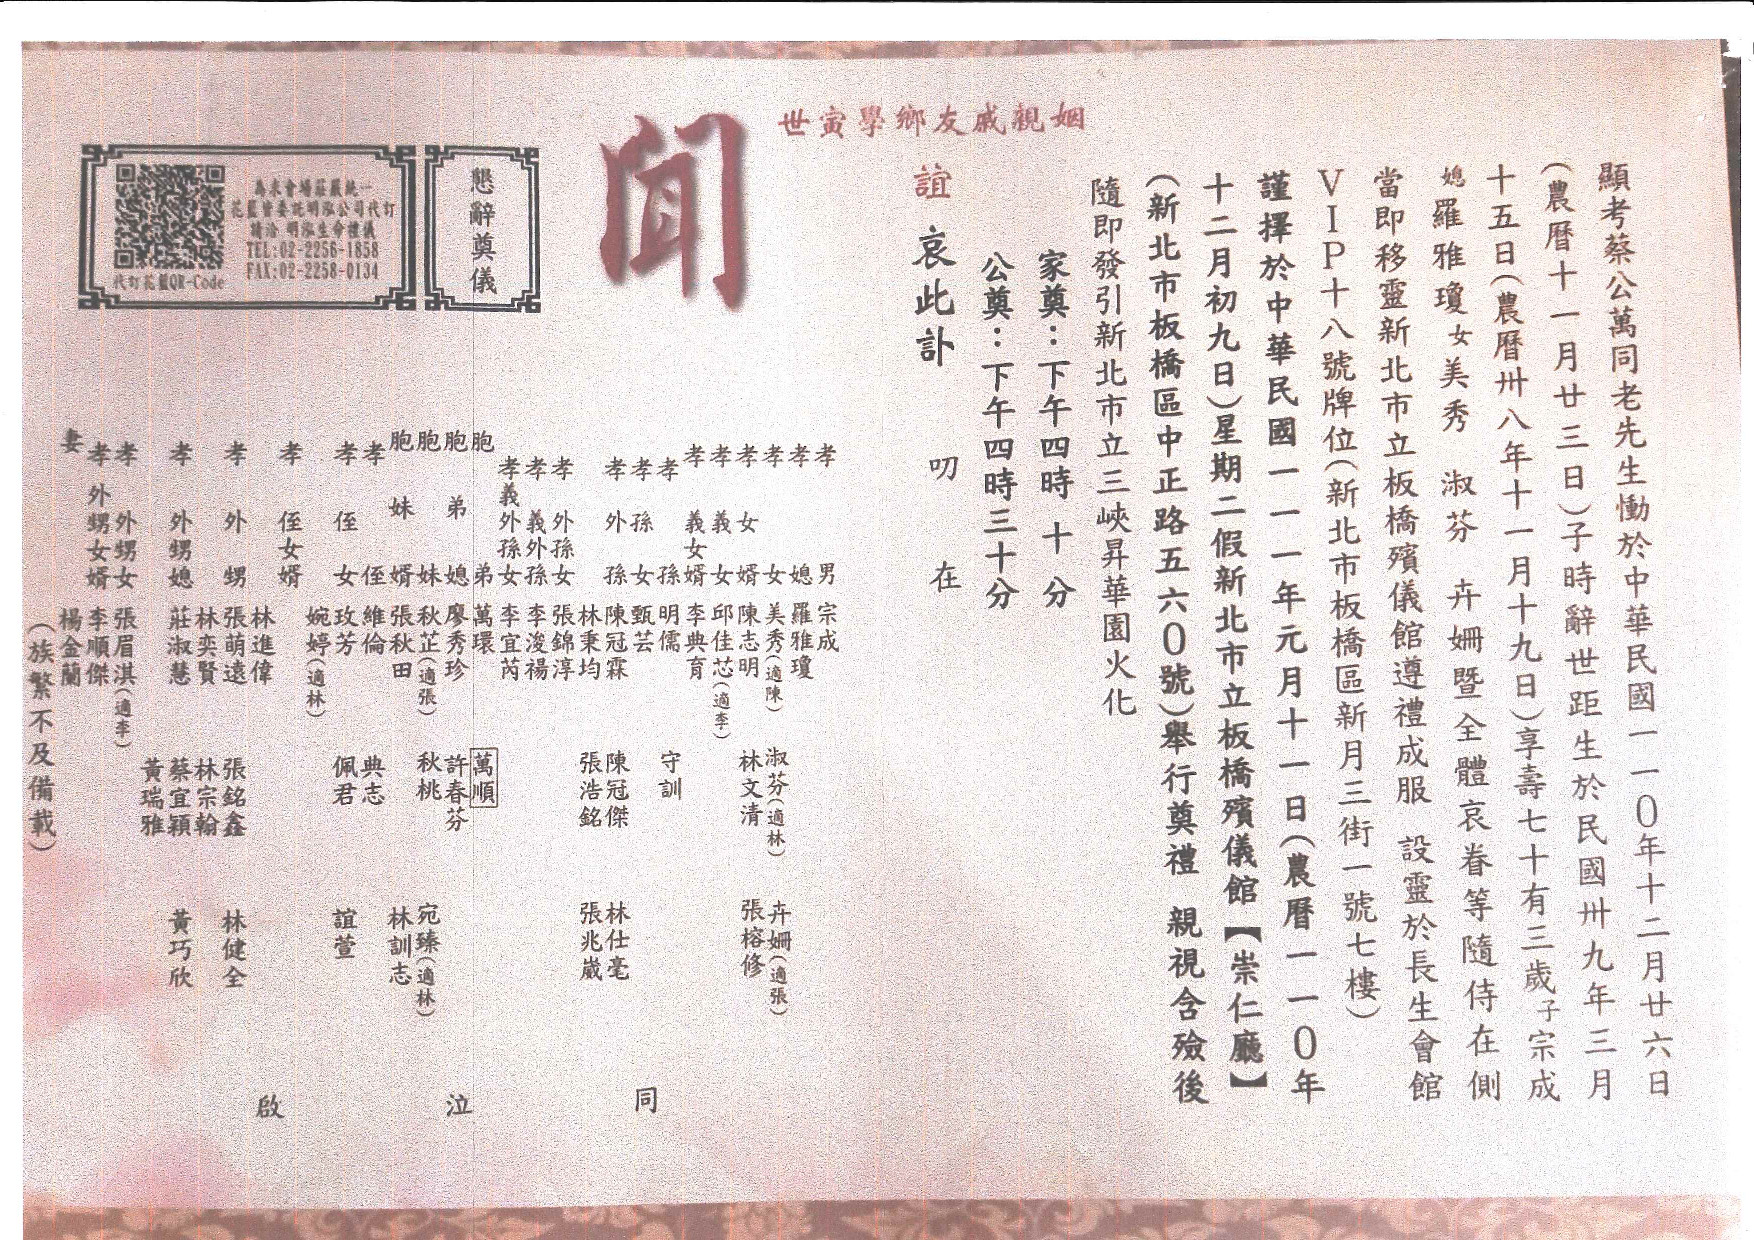 顯考蔡公萬同老先生慟於中華民國一一0年十二月廿六日
(農曆十一月廿三日)子時辭世距生於民國卅九年三月
十五日(農曆卅八年十一月十九日)享壽七十有三歲子宗成
媳羅雅瓊女美秀 淑芬 卉姍暨全體哀眷等隨侍在側
當即移靈新北市立板橋殯儀館遵禮成服 設靈於長生會館
VIP十八號牌位(新北市板橋區新月三街一號七樓)
謹擇於中華民國一一一年元月十一日(農曆一一0年
十二月初九日)星期二假新北市立板橋殯儀館【崇仁廳】
(新北市板橋區中正路五六0號)舉行奠禮 親視含殮後
隨即發引新北市立三峽昇華園火化
家奠:下午四時 十 分
公奠:下午四時三十分
叨在
姻親戚友鄉學寅世
誼 哀此訃
聞
孝男 宗成
孝媳 羅雅瓊
孝女 美秀(適陳) 淑芬(適林) 卉姍(適張)
孝女婿 陳志明 林文清 張榕修
孝義女 邱佳芯(適李)
孝義女婿 李典育
孝孫 明儒 守訓
孝孫女 甄芸
孝外孫 陳冠霖 陳冠傑 林仕毫
林秉均 張浩銘 張兆崴
孝外孫女 張錦淳
孝義外孫 李浚禓
孝義外孫女 李宜芮
胞弟 萬環 萬順
胞弟媳 廖秀珍 許春芬
胞妹 秋芷(適張) 秋桃 宛臻(適林)
胞妹婿 張秋田 林訓志
孝侄 維倫 典志
孝侄女 玫芳 佩君 誼萱
婉婷(適林)
孝侄女婿 林進偉
孝外甥 張萌遠 張銘鑫 林健全
林奕賢 林宗翰
孝外甥媳 莊淑慧 蔡宜穎 黃巧欣
黃瑞雅
孝外甥女 張眉淇(適李)
孝外甥女婿 李順傑
妻 楊金蘭
(族繁不及備載)
同 泣 啟
懇辭奠儀
為求會場莊嚴統一
花籃皆委託明泓公司代訂
請洽 明泓生命禮儀
TEL:02-2256-1858
FAX:02-2258-0134
代訂花籃QR-Code